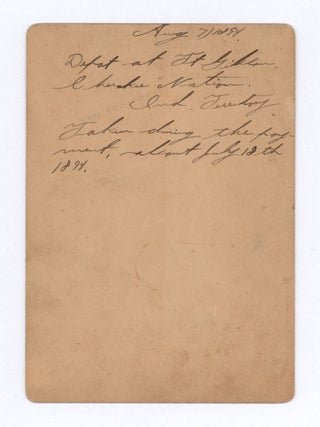 Aug 7/1894
Depot at Ft Gibson,
Cherokee Nation.
Ind. Territory
Taken during the pay-
ment, about July 18th
1894.